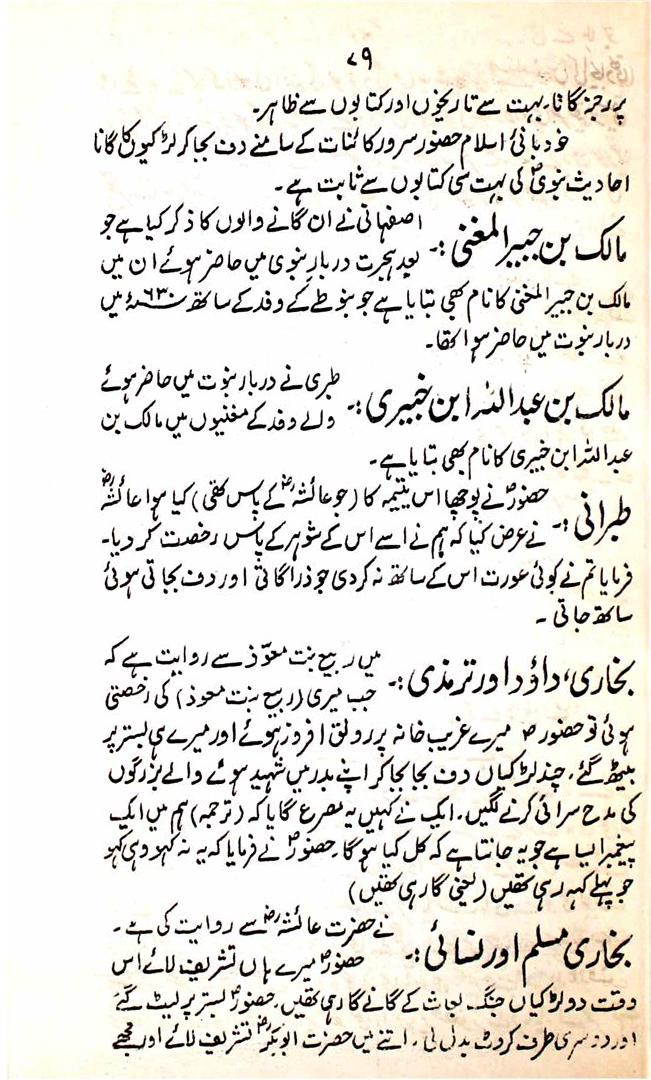 ۷۹
پر رجز گانا، بہت سے تاریخوں اور کتابوں سے ظاہر۔
خود بانیٔ اسلام حضور سرور کائنات کے سامنے دف بجا کر لڑکیوں کا گانا
احادیث نبویؐ کی بہت سی کتابوں سے ثابت ہے۔
مالک بن جبیر المغنی :۔ اصفہانی نے ان گانے والوں کا ذکر کیا ہے جو
بعد ہجرت دربار نبوی میں حاضر ہوئے ان میں
مالک بن جبیر المغنی کا نام بھی بتایا ہے جو بنو طے کے وفد کے ساتھ ۶۳۰ء میں
دربار نبوت میں حاضر ہوا تھا۔
مالک بن عبداللہ ابن خیبری :۔ طبری نے دربار نبوت میں حاضر ہوئے
والے وفد کے مغنیوں میں مالک بن
عبداللہ ابن خیبری کا نام بھی بتایا ہے۔
طبرانی :۔ حضورؐ نے پوچھا اس یتیمہ کا (جو عائشہؓ کے پاس تھی) کیا ہوا عائشہؓ
نے عرض کیا کہ ہم نے اسے اس کے شوہر کے پاس رخصت کر دیا۔
فرمایا تم نے کوئی عورت اس کے ساتھ نہ کر دی جو ذرا گاتی اور دف بجاتی ہوئی
ساتھ جاتی۔
بخاری، داؤد اور ترمذی :۔ میں ربیع بنت معوّذ سے روایت ہے کہ
جب میری (ربیع بنت معوذ) کی رخصتی
ہوئی تو حضورؐ میرے غریب خانہ پر رونق افروز ہوئے اور میرے ہی بستر پر
بیٹھ گئے، چند لڑکیاں دف بجا بجا کر اپنے بدر میں شہید ہونے والے بزرگوں
کی مدح سرائی کرنے لگیں۔ ایک نے کہیں یہ مصرع گایا کہ (ترجمہ) ہم میں ایک
پیغمبر ایسا ہے جو یہ جانتا ہے کہ کل کیا ہو گا۔ حضورؐ نے فرمایا کہ یہ نہ کہو وہی کہو
جو پہلے کہہ رہی تھیں (یعنی گا رہی تھیں)
بخاری مسلم اور نسائی :۔ نے حضرت عائشہؓ سے روایت کی ہے۔
حضورؐ میرے ہاں تشریف لائے اس
وقت دو لڑکیاں جنگ بعاث کے گانے گا رہی تھیں، حضورؐ بستر پر لیٹ گئے
اور دوسری طرف کروٹ بدل لی۔ اتنے میں حضرت ابوبکرؓ تشریف لائے اور مجھے